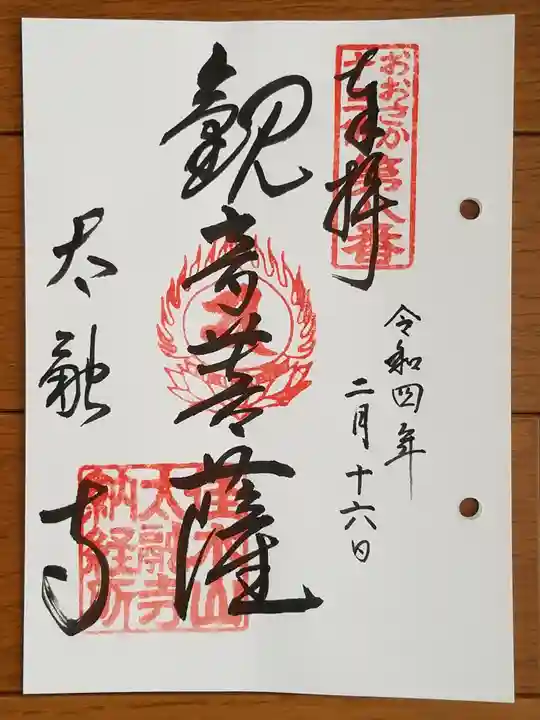 奉拝
おおさか
十三仏 第八番
令和四年
二月十六日
観音菩薩
太融寺
佳木山
太融寺
納経所